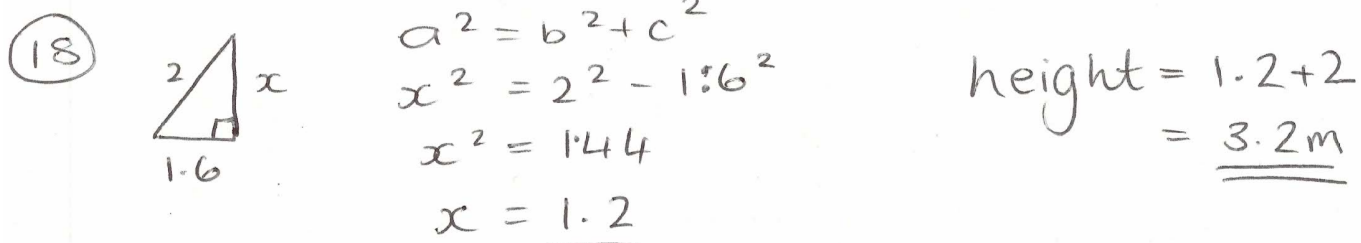 18
2
x
1.6
a² = b² + c²
x² = 2² - 1.6²
x² = 1.44
x = 1.2
height = 1.2 + 2
= 3.2m